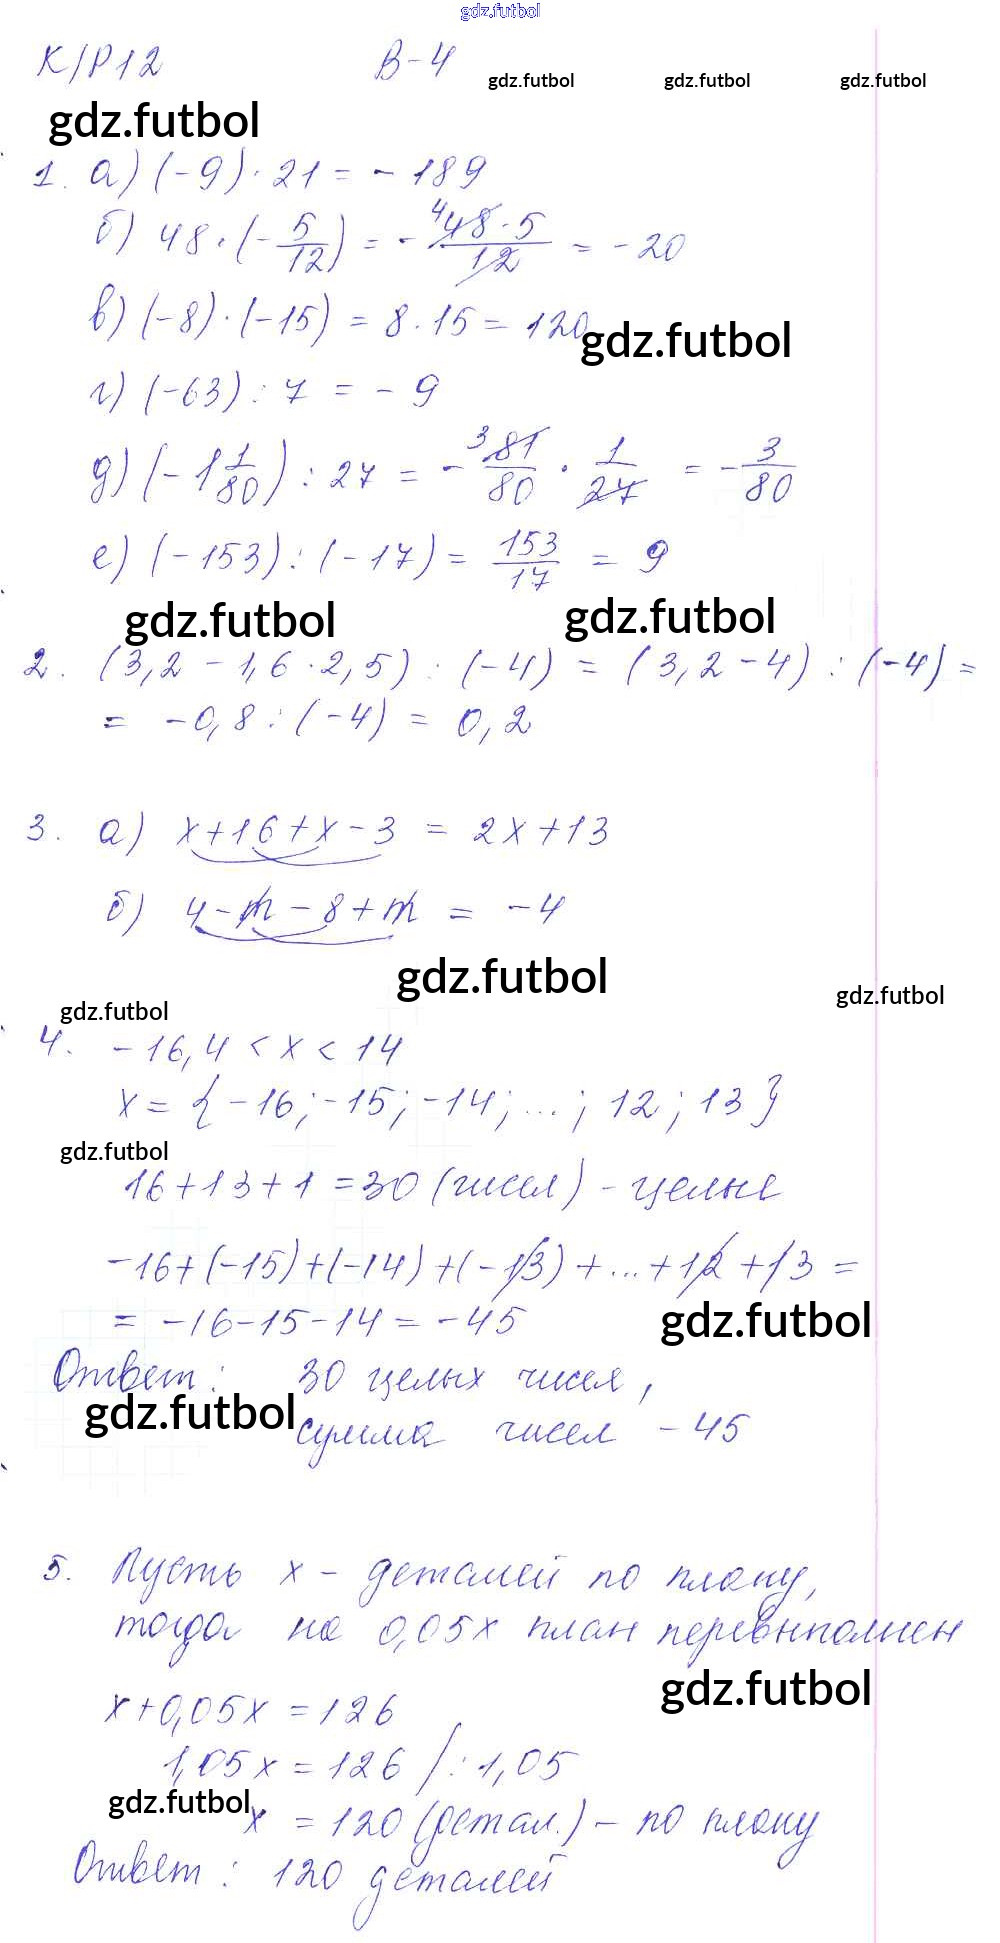 gdz.futbol
К/Р12 В-4
gdz.futbol gdz.futbol gdz.futbol
gdz.futbol
1. а) (-9)·21 = -189
б) 48·(-5/12) = -(48·5)/12 = -20
4
в) (-8)·(-15) = 8·15 = 120
gdz.futbol
г) (-63) : 7 = -9
д) (-1 1/80) : 27 = -81/80 · 1/27 = -3/80
3
е) (-153) : (-17) = 153/17 = 9
gdz.futbol gdz.futbol
2. (3,2 - 1,6·2,5) : (-4) = (3,2 - 4) : (-4) =
= -0,8 : (-4) = 0,2
3. а) x+16+x-3 = 2x+13
б) 4-m-8+m = -4
gdz.futbol
gdz.futbol gdz.futbol
4. -16,4 < x < 14
x = {-16; -15; -14; ...; 12; 13}
gdz.futbol
16+13+1 = 30 (чисел) - целые
-16+(-15)+(-14)+(-13)+...+12+13 =
= -16-15-14 = -45
gdz.futbol
Ответ: 30 целых чисел,
gdz.futbol
сумма чисел -45
5. Пусть x - деталей по плану,
тогда на 0,05x план перевыполнен
gdz.futbol
x+0,05x = 126
1,05x = 126 /:1,05
gdz.futbol
x = 120 (детал.) - по плану
Ответ: 120 деталей